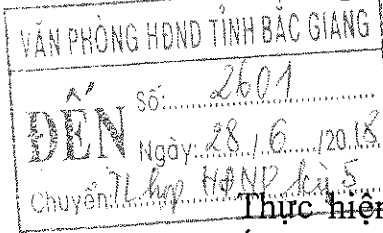 VĂN PHÒNG HĐND TỈNH BẮC GIANG
ĐẾN
Số: 2601
Ngày: 28 / 6 /2018
Chuyển: TL họp HĐND kì 5
Thực hiện